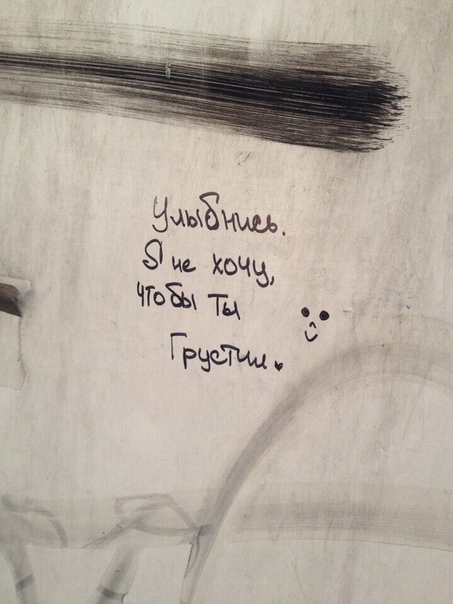 Улыбнись.
Я не хочу,
чтобы ты
Грустил